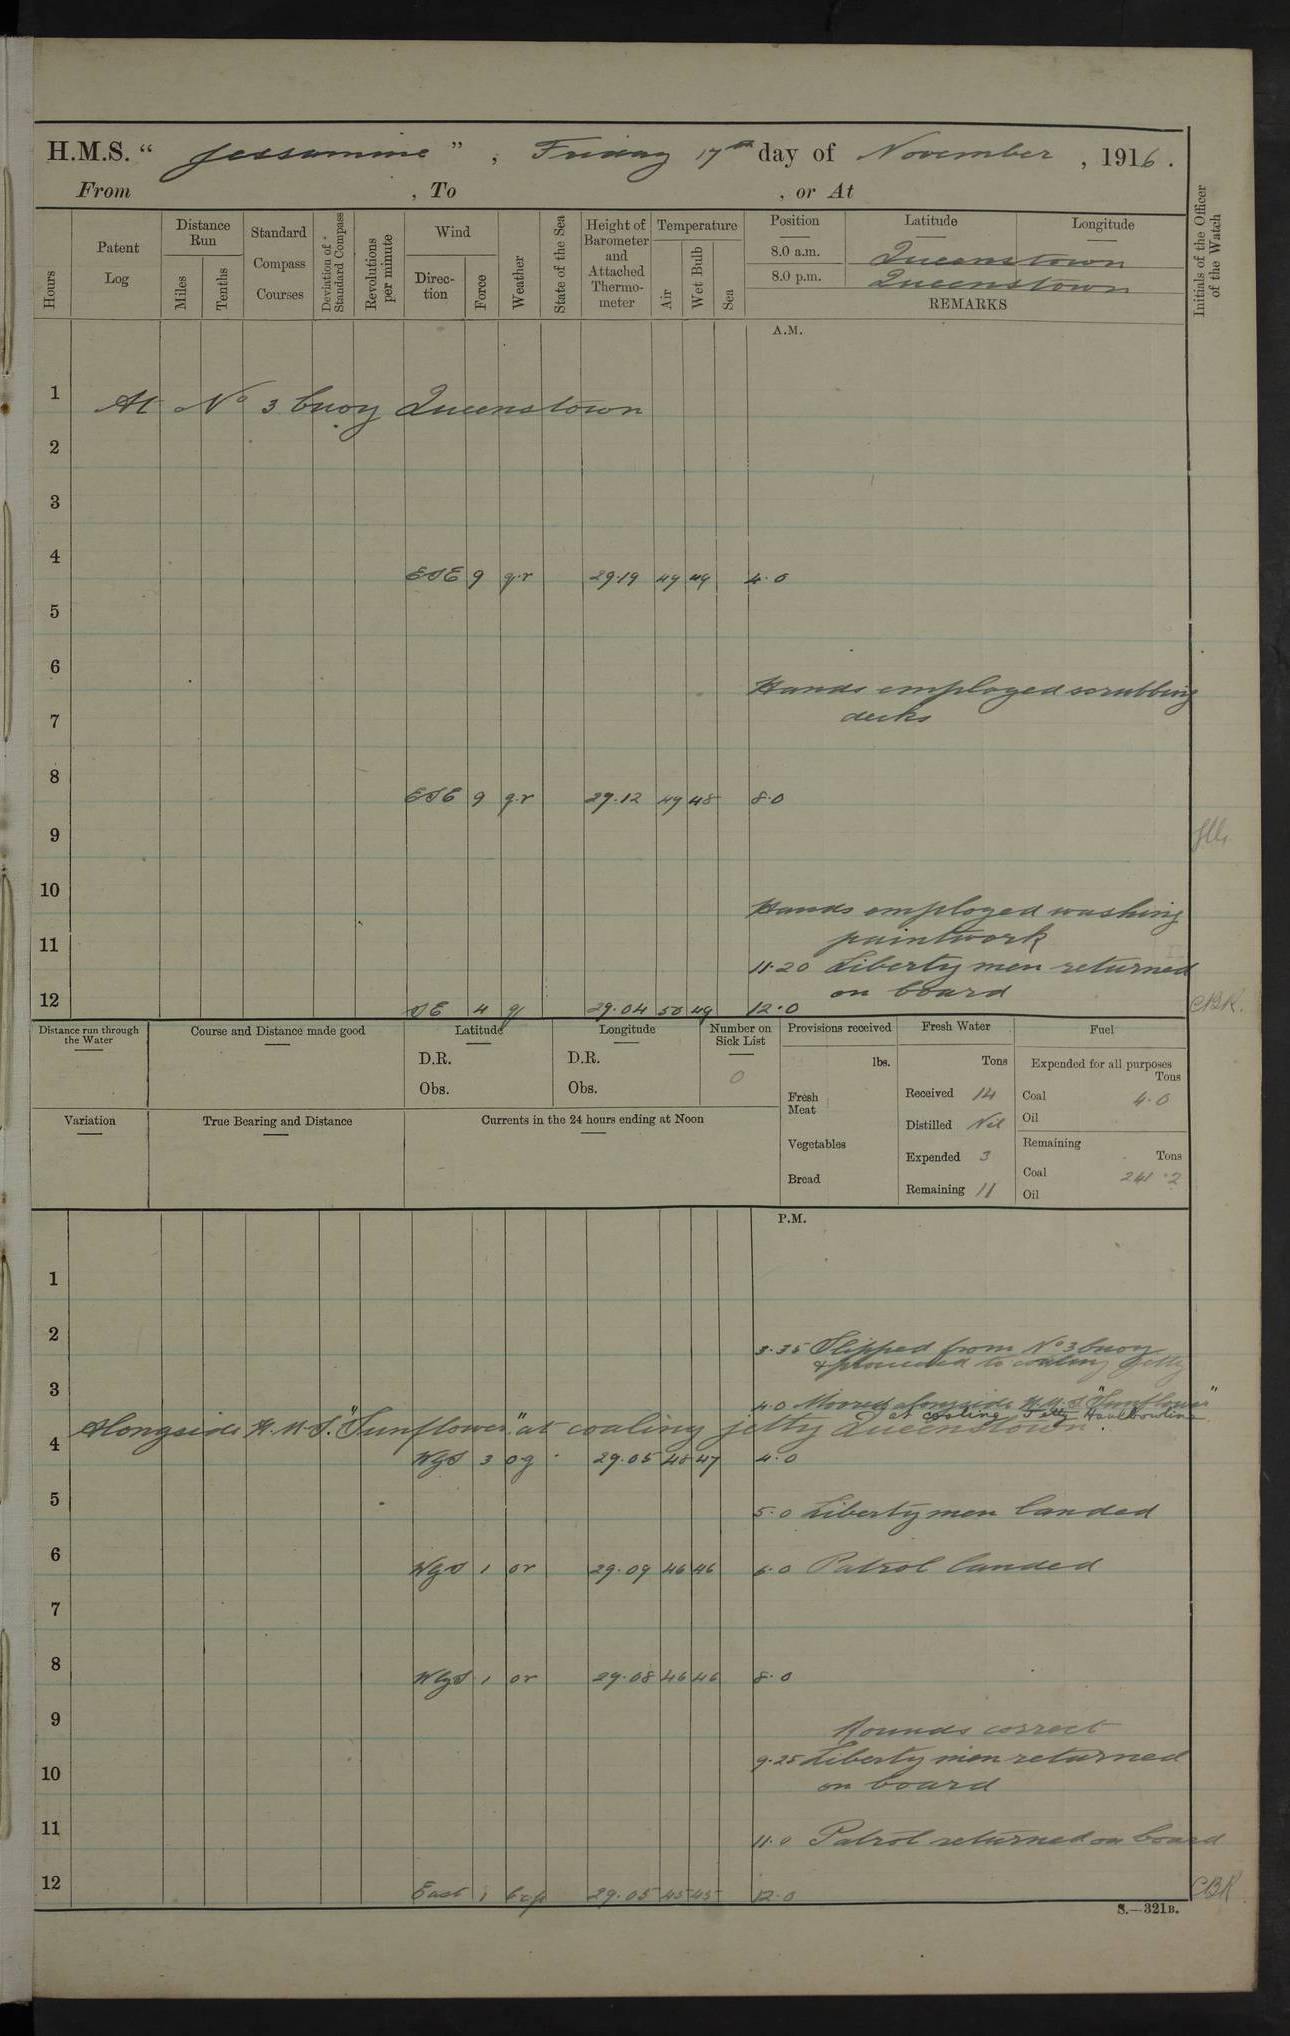 H.M.S. “ Jessamine ” , Friday 17th day of November , 1916 .
From , To , or At
Hours
Patent Log
Distance Run
Miles
Tenths
Standard Compass Courses
Deviation of Standard Compass
Revolutions per minute
Wind
Direction
Force
Weather
State of the Sea
Height of Barometer and Attached Thermometer
Temperature
Air
Wet Bulb
Sea
Position Latitude Longitude
8.0 a.m. Queenstown
8.0 p.m. Queenstown
REMARKS
Initials of the Officer of the Watch
A.M.
1
At No 3 buoy Queenstown
2
3
4
ESE 9 q.r 29.19 49 49 4.0
5
6
Hands employed scrubbing
7 decks
8
ESE 9 q.r 29.12 49 48 8.0
9
10
Hands employed washing
11 paintwork
11.20 Liberty men returned
12 on board
SE 4 q 29.04 50 49 12.0 CBR.
Distance run through the Water
Course and Distance made good
Latitude
D.R.
Obs.
Longitude
D.R.
Obs.
Number on Sick List
0
Provisions received
lbs.
Fresh Meat
Vegetables
Bread
Fresh Water
Tons
Received 14
Distilled Nil
Expended 3
Remaining 11
Fuel
Expended for all purposes
Tons
Coal 4.0
Oil
Remaining
Tons
Coal 241.2
Oil
Variation
True Bearing and Distance
Currents in the 24 hours ending at Noon
P.M.
1
2
3.35 Slipped from No 3 buoy
& proceeded to coaling jetty
3
4.0 Moored alongside H.M.S. "Sunflower"
at coaling Jetty Haulbowline
Alongside H.M.S. "Sunflower" at coaling jetty Queenstown.
4
WbyS 3 og 29.05 48 47 4.0
5
5.0 Liberty men landed
6
WbyS 1 or 29.09 46 46 6.0 Patrol landed
7
8
WbyS 1 or 29.08 46 46 8.0
9
Rounds correct
9.25 Liberty men returned
10 on board
11
11.0 Patrol returned on board
12
East 1 bcp 29.05 45 45 12.0 CBR
S.—321B.